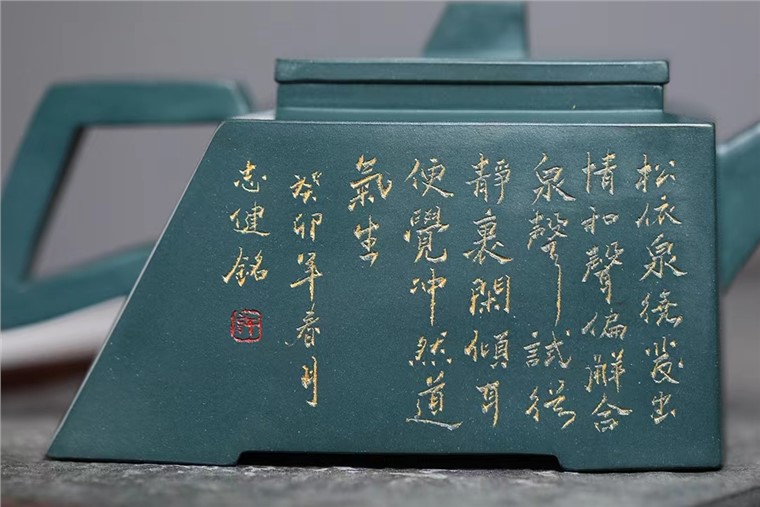 松依泉繞發出
情和聲偏解合
泉聲試從
靜裏閑傾耳
便覺冲然道
氣生
癸卯年春月
志健銘